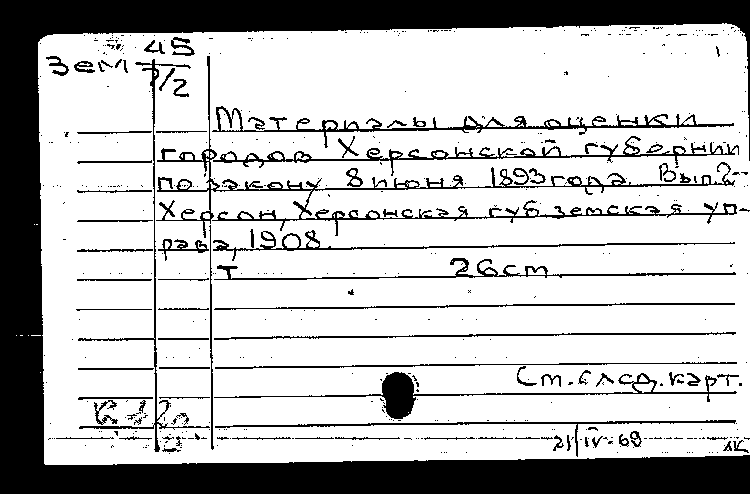 Зем 45
7/2
Материалы для оценки
городов Херсонской губернии
по закону 8 июня 1893 года. Вып.2-
Херсон, Херсонская губ земская уп-
рава, 1908.
т 26cm.
См. след. карт.
21/IV-69